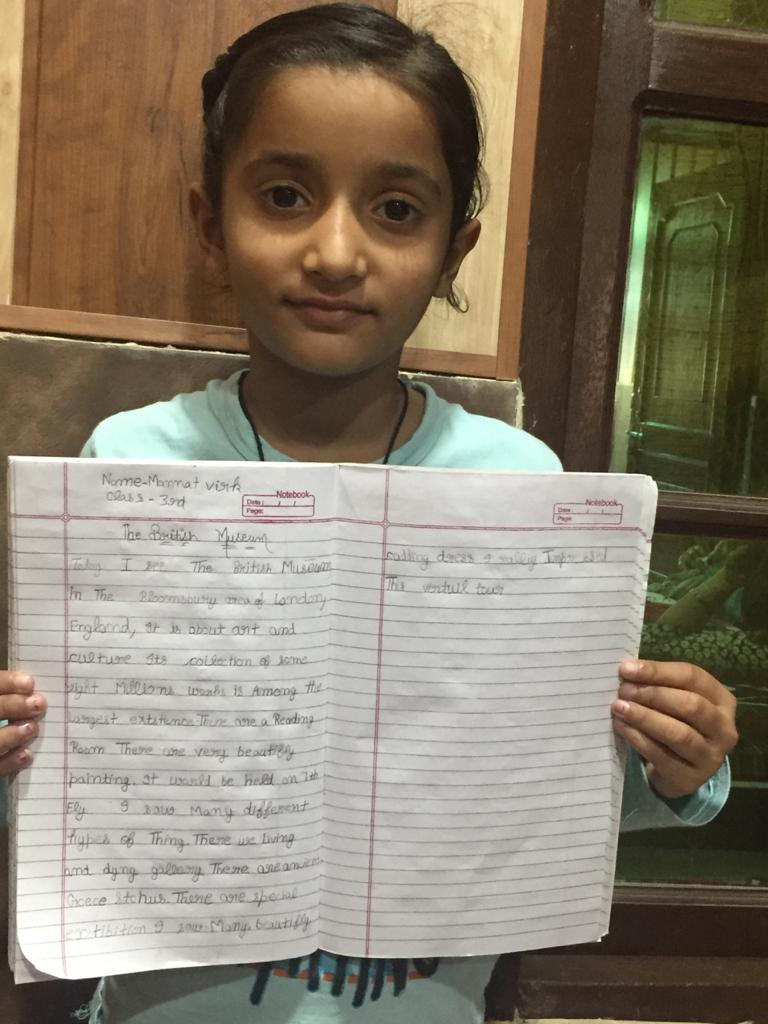 Name-Mannat virk
Class - 3rd
Notebook
Date : / /
Page:
The British Museum
Today I see The British Museum
In The Bloomsbury area of London,
England, It is about art and
culture Its collection of some
eight Millions works is Among the
largest existence There are a Reading
Room There are very beautifly
painting. It world be held on 7th
I saw Many different
hypes of Thing. There we Living
and dyng gallery There are ancient
Greece There are special
extibition I saw Many beautifly
Notebook
Date : / /
Page:
dress I rallly Impressed
This virtuil tour